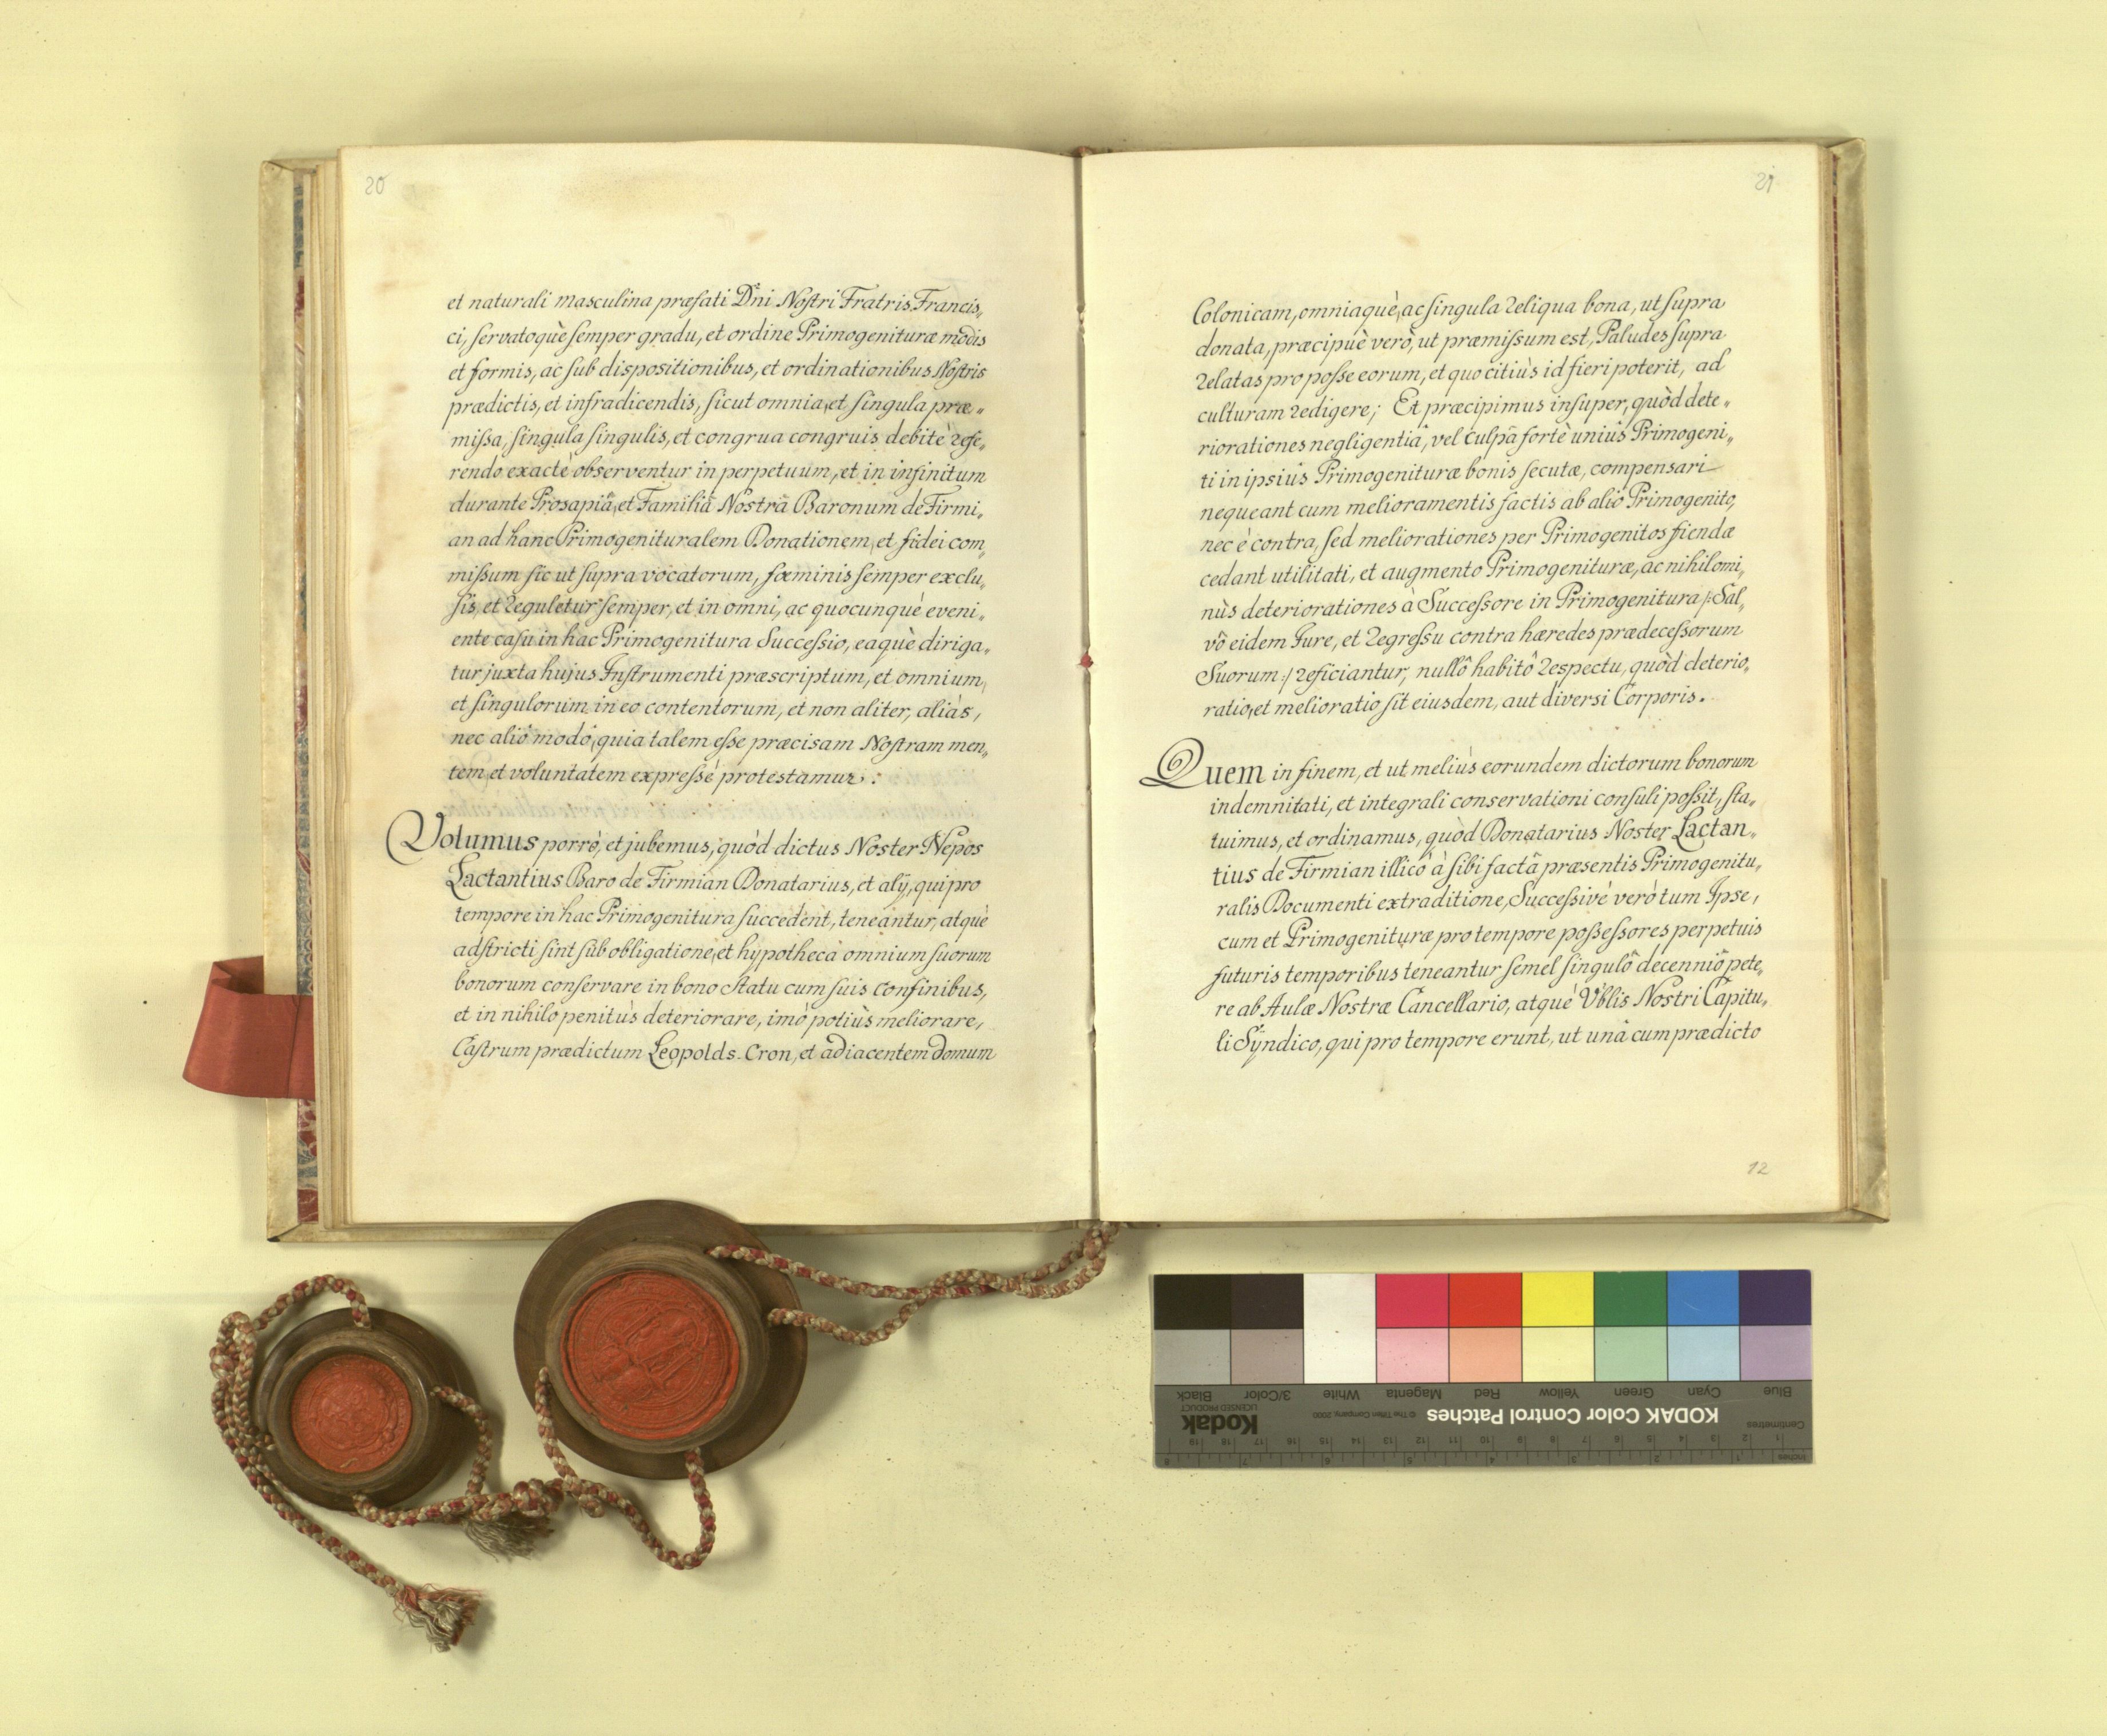 20
et naturali masculina præfati Dñi Nostri Fratris Francis„
ci, servatoquè semper gradu, et ordine Primogenituræ modis
et formis, ac sub dispositionibus, et ordinationibus Nostris
prædictis, et infradicendis, sicut omnia, et singula præ„
missa, singula singulis, et congrua congruis debitè refe„
rendo exactè observentur in perpetuum, et in infinitum
durante Prosapiâ, et Familiâ Nostrâ Baronum de Firmi„
an ad hanc Primogenituralem Donationem, et fidei com„
missum sic ut supra vocatorum, fœminis semper exclu„
sis, et reguletur semper, et in omni, ac quocunquè eveni„
ente casu in hac Primogenitura Successio, eaquè diriga„
tur juxta hujus Instrumenti præscriptum, et omnium,
et singulorum in eo contentorum, et non aliter, aliàs,
nec aliô modô, quia talem esse præcisam Nostram men„
tem, et voluntatem expressè protestamur :
Volumus porrò, et jubemus, quòd dictus Noster Nepos
Lactantius Baro de Firmian Donatarius, et alÿ, qui pro
tempore in hac Primogenitura succedent, teneantur, atquè
adstricti sint sub obligatione, et hÿpothecà omnium suorum
bonorum conservare in bono statu cum suis confinibus,
et in nihilo penitùs deteriorare, imò potiùs meliorare,
Castrum prædictum Leopolds-Cron, et adiacentem domum
21
Colonicam, omniaquè, ac singula reliqua bona, ut supra
donata, præcipuè verò, ut præmissum est, Paludes supra
relatas pro posse eorum, et quo citiùs id fieri poterit, ad
culturam redigere; Et præcipimus insuper, quòd dete„
riorationes negligentiâ, vel culpâ fortè uniùs Primogeni„
ti in ipsiùs Primogenituræ bonis secutæ, compensari
nequeant cum melioramentis factis ab aliô Primogenito,
nec è contra, sed meliorationes per Primogenitos fiendæ
cedant utilitati, et augmento Primogenituræ, ac nihilomi„
nùs deteriorationes à Successore in Primogenitura /: Sal„
vô eidem Jure, et regressu contra hæredes prædecessorum
Suorum :/ reficiantur, nullô habitô respectu, quòd deterio„
ratio, et melioratio sit eiusdem, aut diversi Corporis.
Quem in finem, et ut meliùs eorundem dictorum bonorum
indemnitati, et integrali conservationi consuli possit, sta„
tuimus, et ordinamus, quòd Donatarius Noster Lactan„
tius de Firmian illicô à sibi factâ præsentis Primogenitu„
ralis Documenti extraditione, Successivè verò tum Ipse,
cum et Primogenituræ pro tempore possessores perpetuis
futuris temporibus teneantur semel singulô decenniô pete„
re ab Aulæ Nostræ Cancellario, atquè Vblis Nostri Capitu„
li Sÿndico, qui pro tempore erunt, ut unâ cum prædicto
12
Blue Cyan Green Yellow Red Magenta White 3/Color Black
Centimetres KODAK Color Control Patches © The Tiffen Company, 2000 Kodak
LICENSED PRODUCT
1 2 3 4 5 6 7 8 9 10 11 12 13 14 15 16 17 18 19
Inches 1 2 3 4 5 6 7 8